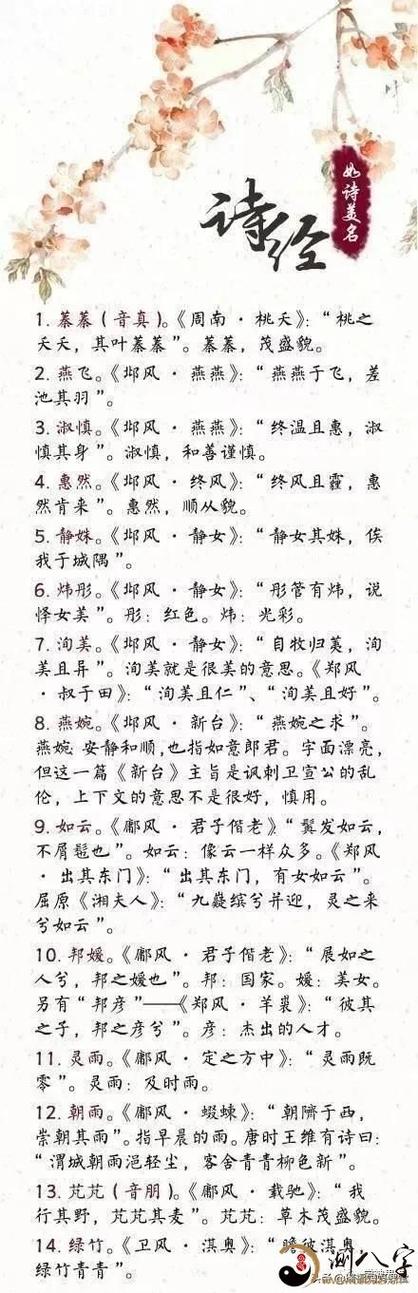 诗经
如诗美名
1. 蓁蓁（音真）。《周南·桃夭》：“桃之
夭夭，其叶蓁蓁”。蓁蓁，茂盛貌。
2. 燕飞。《邶风·燕燕》：“燕燕于飞，差
池其羽”。
3. 淑慎。《邶风·燕燕》：“终温且惠，淑
慎其身”。淑慎，和善谨慎。
4. 惠然。《邶风·终风》：“终风且霾，惠
然肯来”。惠然，顺从貌。
5. 静姝。《邶风·静女》：“静女其姝，俟
我于城隅”。
6. 炜彤。《邶风·静女》：“彤管有炜，说
怿女美”。彤：红色。炜：光彩。
7. 洵美。《邶风·静女》：“自牧归荑，洵
美且异”。洵美就是很美的意思。《郑风
·叔于田》：“洵美且仁”、“洵美且好”。
8. 燕婉。《邶风·新台》：“燕婉之求”。
燕婉 安静和顺,也指如意郎君。字面漂亮，
但这一篇《新台》主旨是讽刺卫宣公的乱
伦，上下文的意思不是很好，慎用。
9. 如云。《鄘风·君子偕老》“鬒发如云，
不屑髢也”。如云：像云一样众多。《郑风
·出其东门》：“出其东门，有女如云”。
屈原《湘夫人》：“九嶷缤兮并迎，灵之来
兮如云”。
10. 邦媛。《鄘风·君子偕老》：“展如之
人兮，邦之媛也”。邦：国家。媛：美女。
另有“邦彦”——《郑风·羊裘》：“彼其
之子，邦之彦兮”。彦：杰出的人才。
11. 灵雨。《鄘风·定之方中》：“灵雨既
零”。灵雨：及时雨。
12. 朝雨。《鄘风·蝃蝀》：“朝隮于西，
崇朝其雨”。指早晨的雨。唐时王维有诗曰：
“渭城朝雨浥轻尘，客舍青青柳色新”。
13. 芃芃（音朋）。《鄘风·载驰》：“我
行其野，芃芃其麦”。芃芃：草木茂盛貌。
14. 绿竹。《卫风·淇奥》：“瞻彼淇奥，
绿竹青青”。
测八字